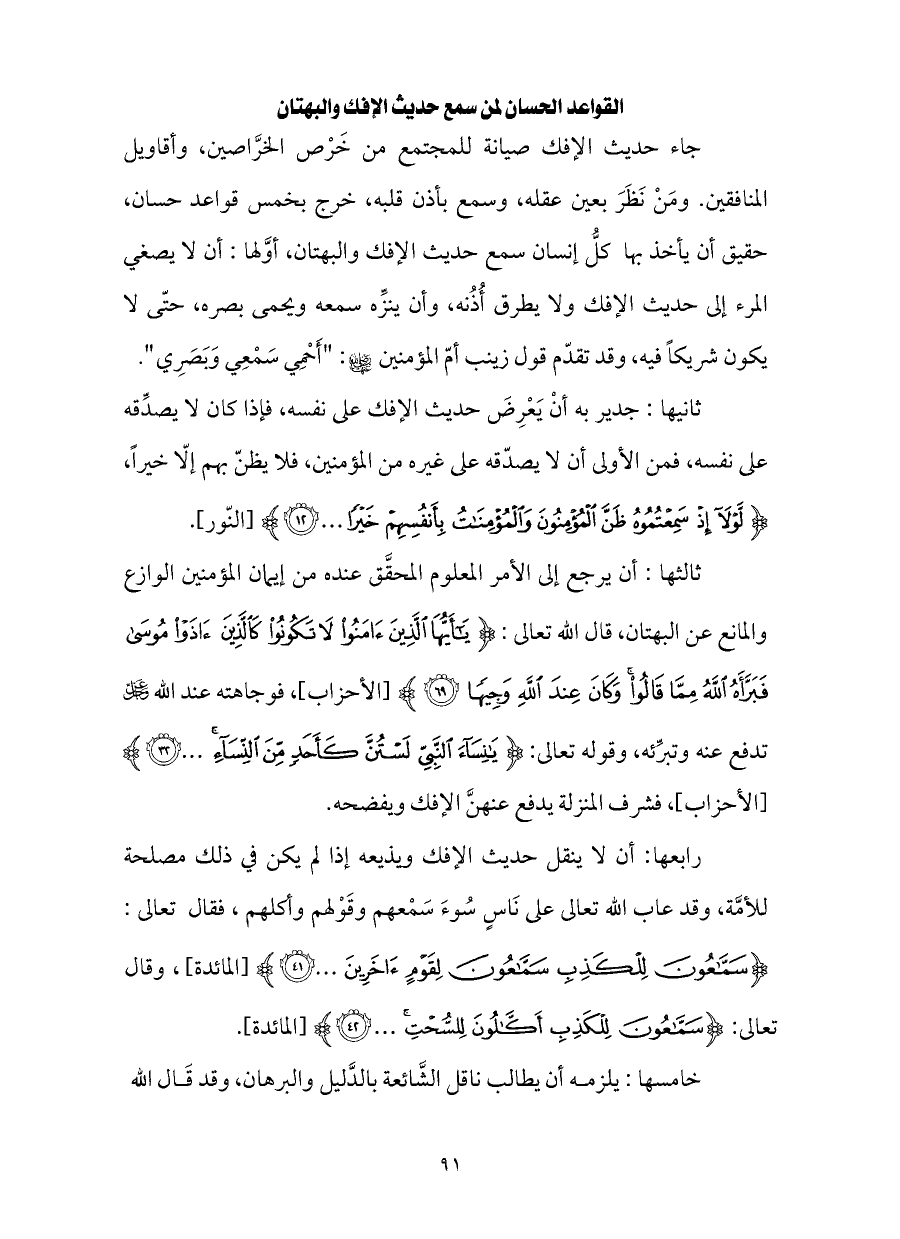 القواعد الحسان لمن سمع حديث الإفك والبهتان
جاء حديث الإفك صيانة للمجتمع من خَرْص الخرَّاصين، وأقاويل
المنافقين. ومَنْ نَظَرَ بعين عقله، وسمع بأذن قلبه، خرج بخمس قواعد حسان،
حقيق أن يأخذ بها كلُّ إنسان سمع حديث الإفك والبهتان، أوَّلها : أن لا يصغي
المرء إلى حديث الإفك ولا يطرق أُذُنه، وأن ينزِّه سمعه ويحمى بصره، حتّى لا
يكون شريكاً فيه، وقد تقدّم قول زينب أمّ المؤمنين : "أَحْمِي سَمْعِي وَبَصَرِي".
ثانيها : جدير به أنْ يَعْرِضَ حديث الإفك على نفسه، فإذا كان لا يصدِّقه
على نفسه، فمن الأولى أن لا يصدّقه على غيره من المؤمنين، فلا يظنّ بهم إلّا خيراً،
﴿ لَّوْلَآ إِذْ سَمِعْتُمُوهُ ظَنَّ ٱلْمُؤْمِنُونَ وَٱلْمُؤْمِنَٰتُ بِأَنفُسِهِمْ خَيْرًا ... ١٢ ﴾ [النّور].
ثالثها : أن يرجع إلى الأمر المعلوم المحقَّق عنده من إيمان المؤمنين الوازع
والمانع عن البهتان، قال الله تعالى : ﴿ يَٰٓأَيُّهَا ٱلَّذِينَ ءَامَنُوا۟ لَا تَكُونُوا۟ كَٱلَّذِينَ ءَاذَوْا۟ مُوسَىٰ
فَبَرَّأَهُ ٱللَّهُ مِمَّا قَالُوا۟ ۚ وَكَانَ عِندَ ٱللَّهِ وَجِيهًا ٦٩ ﴾ [الأحزاب]، فوجاهته عند الله ﷻ
تدفع عنه وتبرِّئه، وقوله تعالى: ﴿ يَٰنِسَآءَ ٱلنَّبِىِّ لَسْتُنَّ كَأَحَدٍ مِّنَ ٱلنِّسَآءِ ۚ ... ٣٢ ﴾
[الأحزاب]، فشرف المنزلة يدفع عنهنَّ الإفك ويفضحه.
رابعها: أن لا ينقل حديث الإفك ويذيعه إذا لم يكن في ذلك مصلحة
للأمَّة، وقد عاب الله تعالى على نَاسٍ سُوءَ سَمْعهم وقَوْلهم وأكلهم ، فقال تعالى :
﴿ سَمَّٰعُونَ لِلْكَذِبِ سَمَّٰعُونَ لِقَوْمٍ ءَاخَرِينَ ... ٤١ ﴾ [المائدة] ، وقال
تعالى: ﴿ سَمَّٰعُونَ لِلْكَذِبِ أَكَّٰلُونَ لِلسُّحْتِ ۚ ... ٤٢ ﴾ [المائدة].
خامسها : يلزمـه أن يطالب ناقل الشَّائعة بالدَّليل والبرهان، وقد قَـال الله
٩١